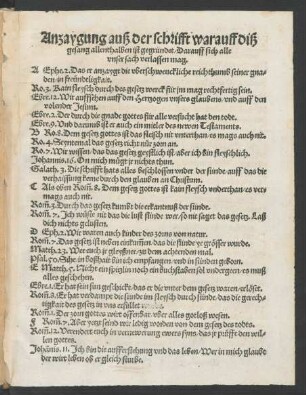 Anzaygung auß der schrifft warauff diß
gesang allenthalben ist gegründet. Darauff sich alle
vnser sach verlassen mag.
A Ephe.2. Das er anzaygt die vberschwenckliche reichthumb seiner gna-
den in freündtligkait.
Ro.3. Kain fleysch durch des gesetz werck für jm mag rechtfertig sein.
Ebre.12. Wir auffsehen auff den Hertzogen vnsers glaubens vnd auff den
volender Jesum.
Ebre.2. Der durch die gnade gottes für alle versucht hat den tode.
Ebre.9. Und darumb ist er auch ein mitler des newen Testaments.
B Ro.8. Dem gesetz gottes ist das fleisch nit vnterthan es mags auch nit.
Ro.4. Seyntemal das gesetz richt nür zorn an.
Ro.7. Wir wissen das das gesetz geystlich ist aber ich bin fleyschlich.
Johannis.15. On mich mügt jr nichts thun.
Galath.3. Die schrifft hats alles beschlossen vnder der sünde auff das die
verhaissung keme durch den glauben an Christum.
C Als oben Rom.8. Dem gesetz gottes ist kain fleysch vnderthan es ver-
mags auch nit.
Rom.3. Durch das gesetz kumbt die erkantnus der sünde.
Rom.7. Ich wüste nit das die lust sünde were so nit saget das gesetz. Laß
dich nichts gelüsten.
D Ephe.2. Wir waren auch kinder des zorns von natur.
Rom.7. Das gesetz ist neben einkummen das die sünde grösser wurde.
Math.23. We euch jr gleyßner
Psal.50. Sihe in boßhait bin ich empfangen vnd in sünden geborn.
E Math.5. Nicht ein spiglin noch ein buchstaben sol vndergeen es muß
alles geschehen.
Ebre.1. Er hat sein sun geschickt das er die vnter dem gesetz waren erlöset.
Rom.8. Er hat verdampt die sünde im fleysch durch sünde das die gerech-
tigkait des gesetz in vns erfüllet
Rom.1. Der zorn gottes wirt offenbar vber alles gotloß wesen.
F Rom.7. Aber yetz seind wir ledig worden von dem gesetz des todts.
Rom.12. Verendert euch in vernewerung ewers syns das jr prüffe den wil-
len gottes.
Johānis.11. Ich bin die aufferstehung vnd das leben / Wer in mich glaubt
der wirt leben ob er gleich stürbe.